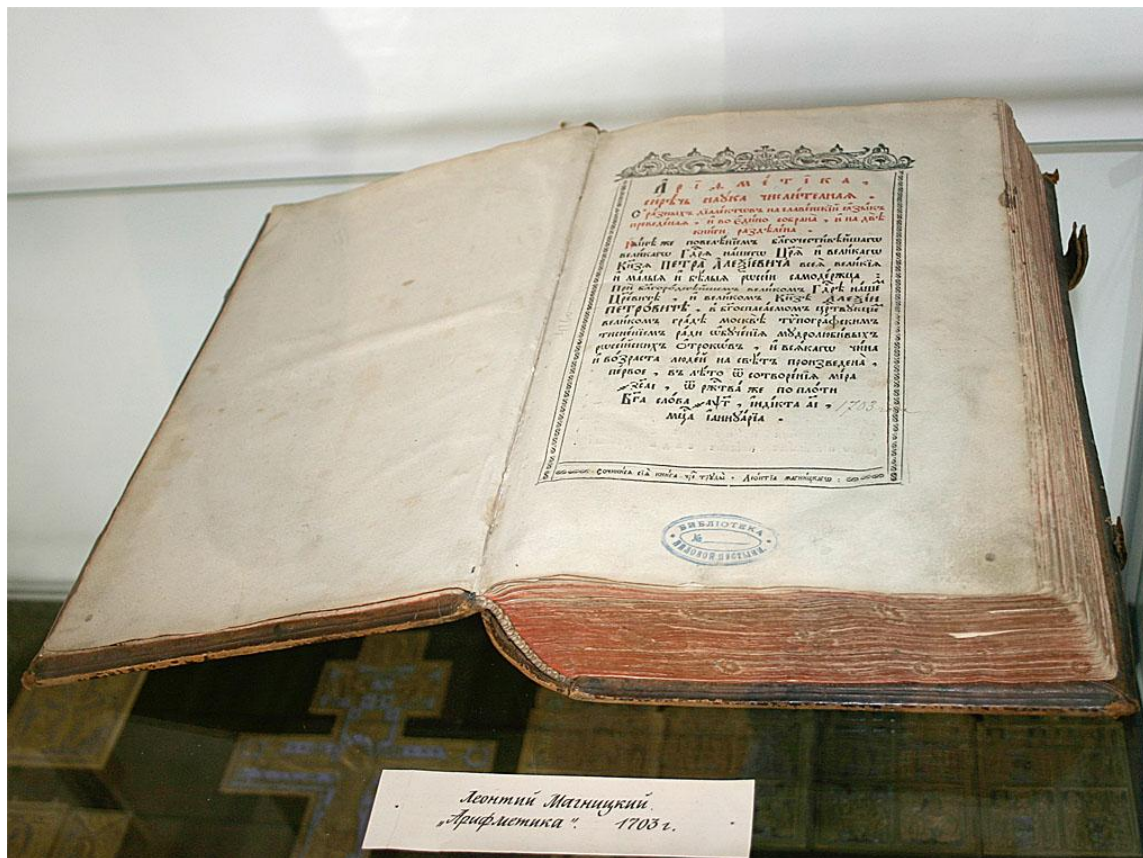 Арїѳме́тїка,
сирѣчь наука числителная.
С̾ разныхъ дїалектѡвъ на славенскїй ѧзыкъ
преведеная, и во едино собрана, и на двѣ
книги раздѣлена.
же повелѣнїемъ бл҃гочестивѣйшагѡ
великагѡ Гдⷭ҇рѧ нашегѡ Цр҃ѧ и великагѡ
Кн҃зѧ ПЕТРА АЛЕѮІЕВИЧА всеѧ великїѧ
и малыѧ и бѣлыѧ рѡсїи самодержца:
При бл҃городнѣйшемъ великомъ Гдⷭ҇рѣ нашемъ
Цр҃вичѣ, и великомъ Кн҃зѣ АЛЕѮІИ
ПЕТРОВИЧѢ, в̾ бг҃оспасаемомъ црⷭ҇твующемъ
великомъ градѣ москвѣ тѵпографскимъ
тисненїемъ ради ѡбученїѧ мудролюбивыхъ
рѡсїйскихъ отрокѡвъ, и всѧкагѡ чина
и возраста людей на свѣтъ произведена,
первое, въ лѣто ѿ сотворенїѧ мїра
҂зсаі, ѿ ржⷭ҇тва же по плоти
Бг҃а слова ҂аѱг, индікта аі, 1703
мцⷭ҇а іаннуарїа.
Сочинисѧ сїѧ книга чрез̾ труды Леонтїа магницкагѡ:
БИБЛІОТЕКА
№
Леонтий Магницкий.
„Арифметика“. 1703 г.